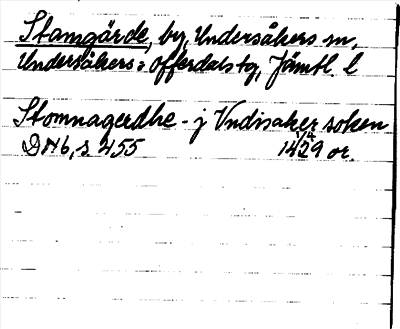 Stamgärde, by, Undersåkers sn,
Undersåkers o Offerdals tg, Jämtl. l
Stomnagerdhe - j Vndisaker soken
DN 6, s. 455 14/4 1429 or.